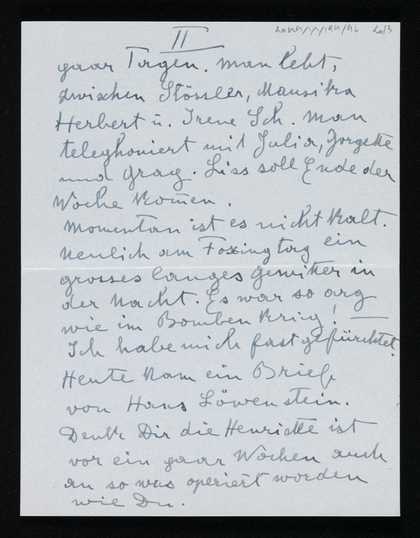 II
paar Tagen. Man lebt,
zwischen Stössler, Mausika
Herbert u. Irene Sch. Man
telephoniert mit Julia, Jorgette
und Gray. Liss soll Ende der
Woche kom̄en.
Momentan ist es nicht kalt.
Neulich am Foxingtag ein
grosses langes Gewitter in
der Nacht. Es war so arg
wie im Bomben Krieg! —
Ich habe mich fast gefürchtet.
Heute kam ein Brief
von Hans Löwenstein.
Denk Dir die Henriette ist
vor ein paar Wochen auch
an so was operiert worden
wie Du.